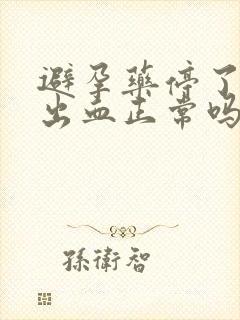 避孕藥停了
出血正常吗
孫衛智